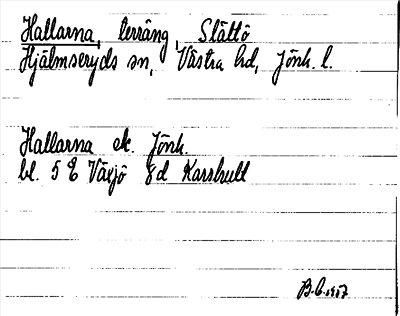 Hallarna, terräng, Slättö
Hjälmseryds sn, Västra hd, Jönk. l.
Hallarna ek. Jönk.
bl. 5 E Växjö 8d Karshult
B.C. 1957